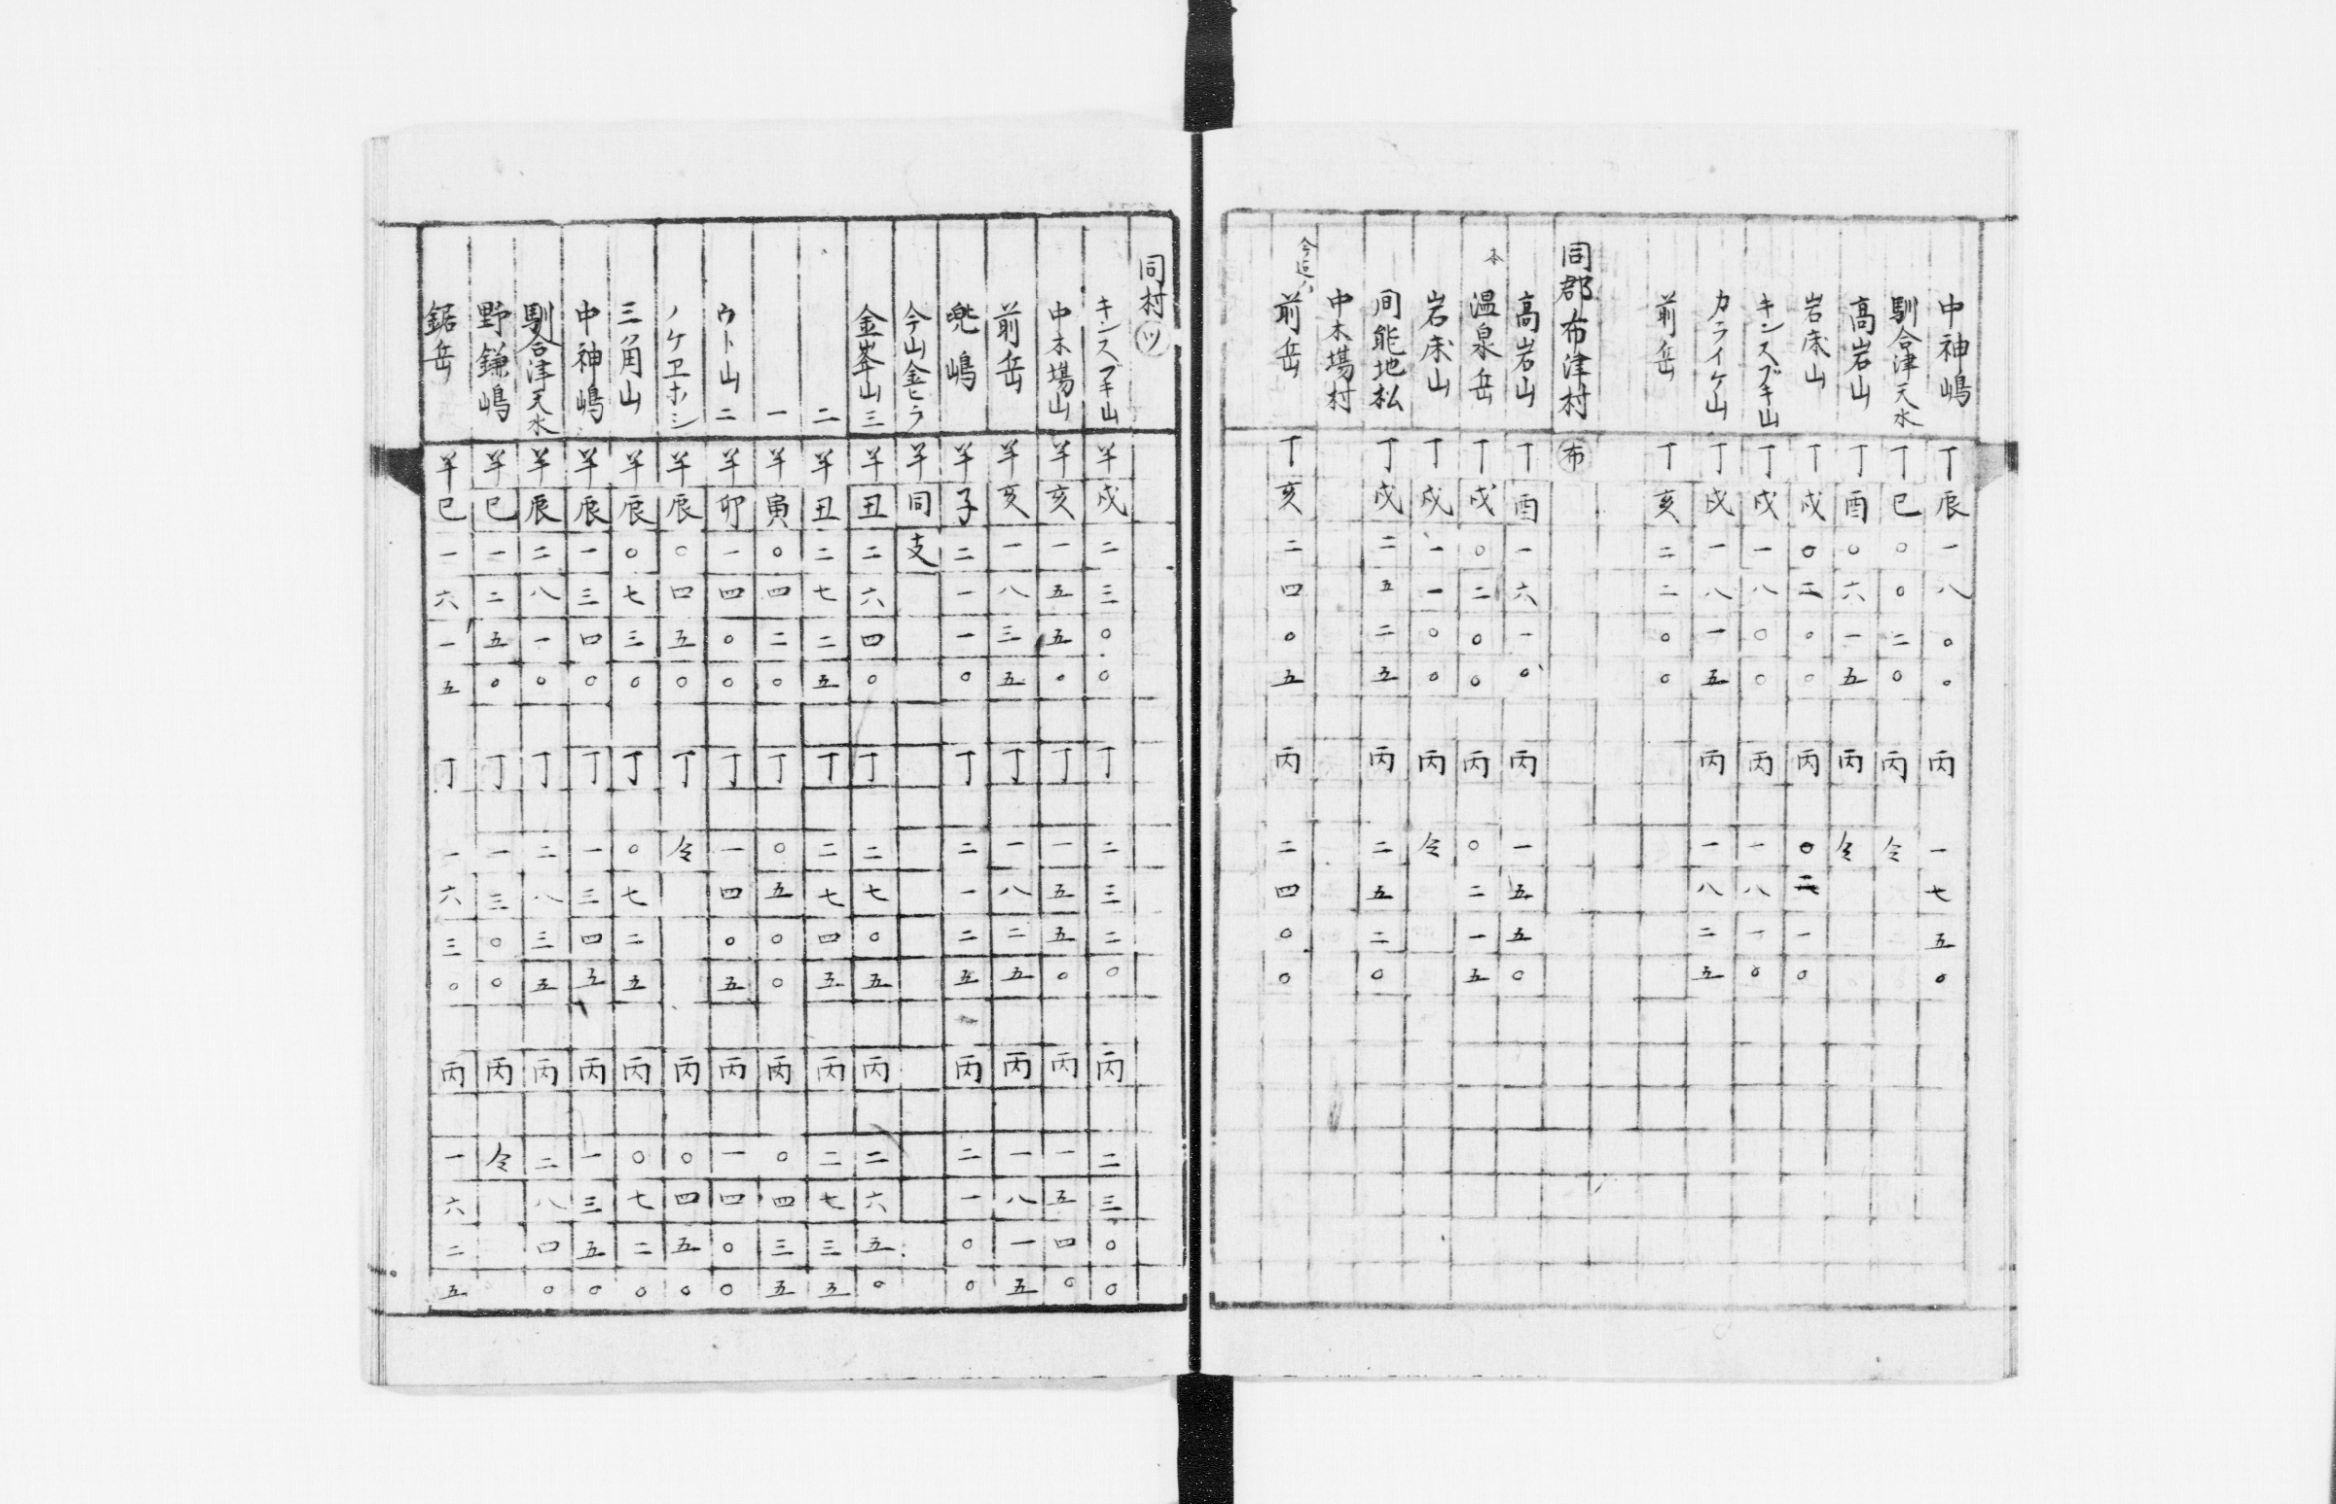 中神嶋 丁辰 一八〇〇 丙 一七五〇
馴合津天水 丁巳 〇〇二〇 丙 仝
高岩山 丁酉 〇六一五 丙 仝
岩床山 丁戌 〇二〇〇 丙 〇二一〇
キンスブキ山 丁戌 一八〇〇 丙 一八一〇
カライケ山 丁戌 一八一五 丙 一八二五
前岳 丁亥 二二〇〇
同郡布津村 布
高岩山 丁酉 一六一〇 丙 一五五〇
本 温泉岳 丁戌 〇二〇〇 丙 〇二一五
岩床山 丁戌 一一〇〇 丙 仝
間能地松 丁戌 二五二五 丙 二五二〇
中木場村
前岳 丁亥 二四〇五 丙 二四〇〇
同村 ツ
キンスブキ山 羊戌 二三〇〇 丁 二三二〇 丙 二三〇〇
中木場山 羊亥 一五五〇 丁 一五五〇 丙 一五四〇
前岳 羊亥 一八三五 丁 一八二五 丙 一八一五
兜嶋 羊子 二一一〇 丁 二一二五 丙 二一〇〇
今山金ヒラ 羊同支
金峯山三 羊丑 二六四〇 丁 二七〇五 丙 二六五〇
二 羊丑 二七二五 丁 二七四五 丙 二七三五
一 羊寅 〇四二〇 丁 〇五〇〇 丙 〇四三五
ウト山二 羊卯 一四〇〇 丁 一四〇五 丙 一四〇〇
ノケヱホシ 羊辰 〇四五〇 丁 仝 丙 〇四五〇
三角山 羊辰 〇七三〇 丁 〇七二五 丙 〇七二〇
中神嶋 羊辰 一三四〇 丁 一三四五 丙 一三五〇
馴合津天水 羊辰 二八一〇 丁 二八三五 丙 二八四〇
野鎌嶋 羊巳 一二五〇 丁 一三〇〇 丙 仝
鋸岳 羊巳 一六一五 丁 一六三〇 丙 一六二五